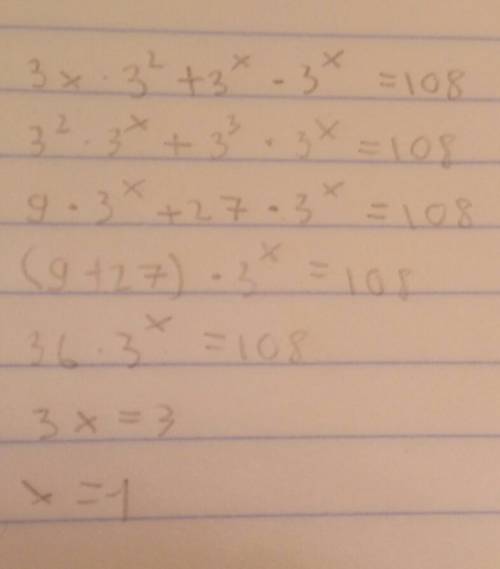 3x · 3² + 3ˣ - 3ˣ = 108
3² · 3ˣ + 3³ · 3ˣ = 108
9 · 3ˣ + 27 · 3ˣ = 108
(9 + 27) · 3ˣ = 108
36 · 3ˣ = 108
3x = 3
x = 1